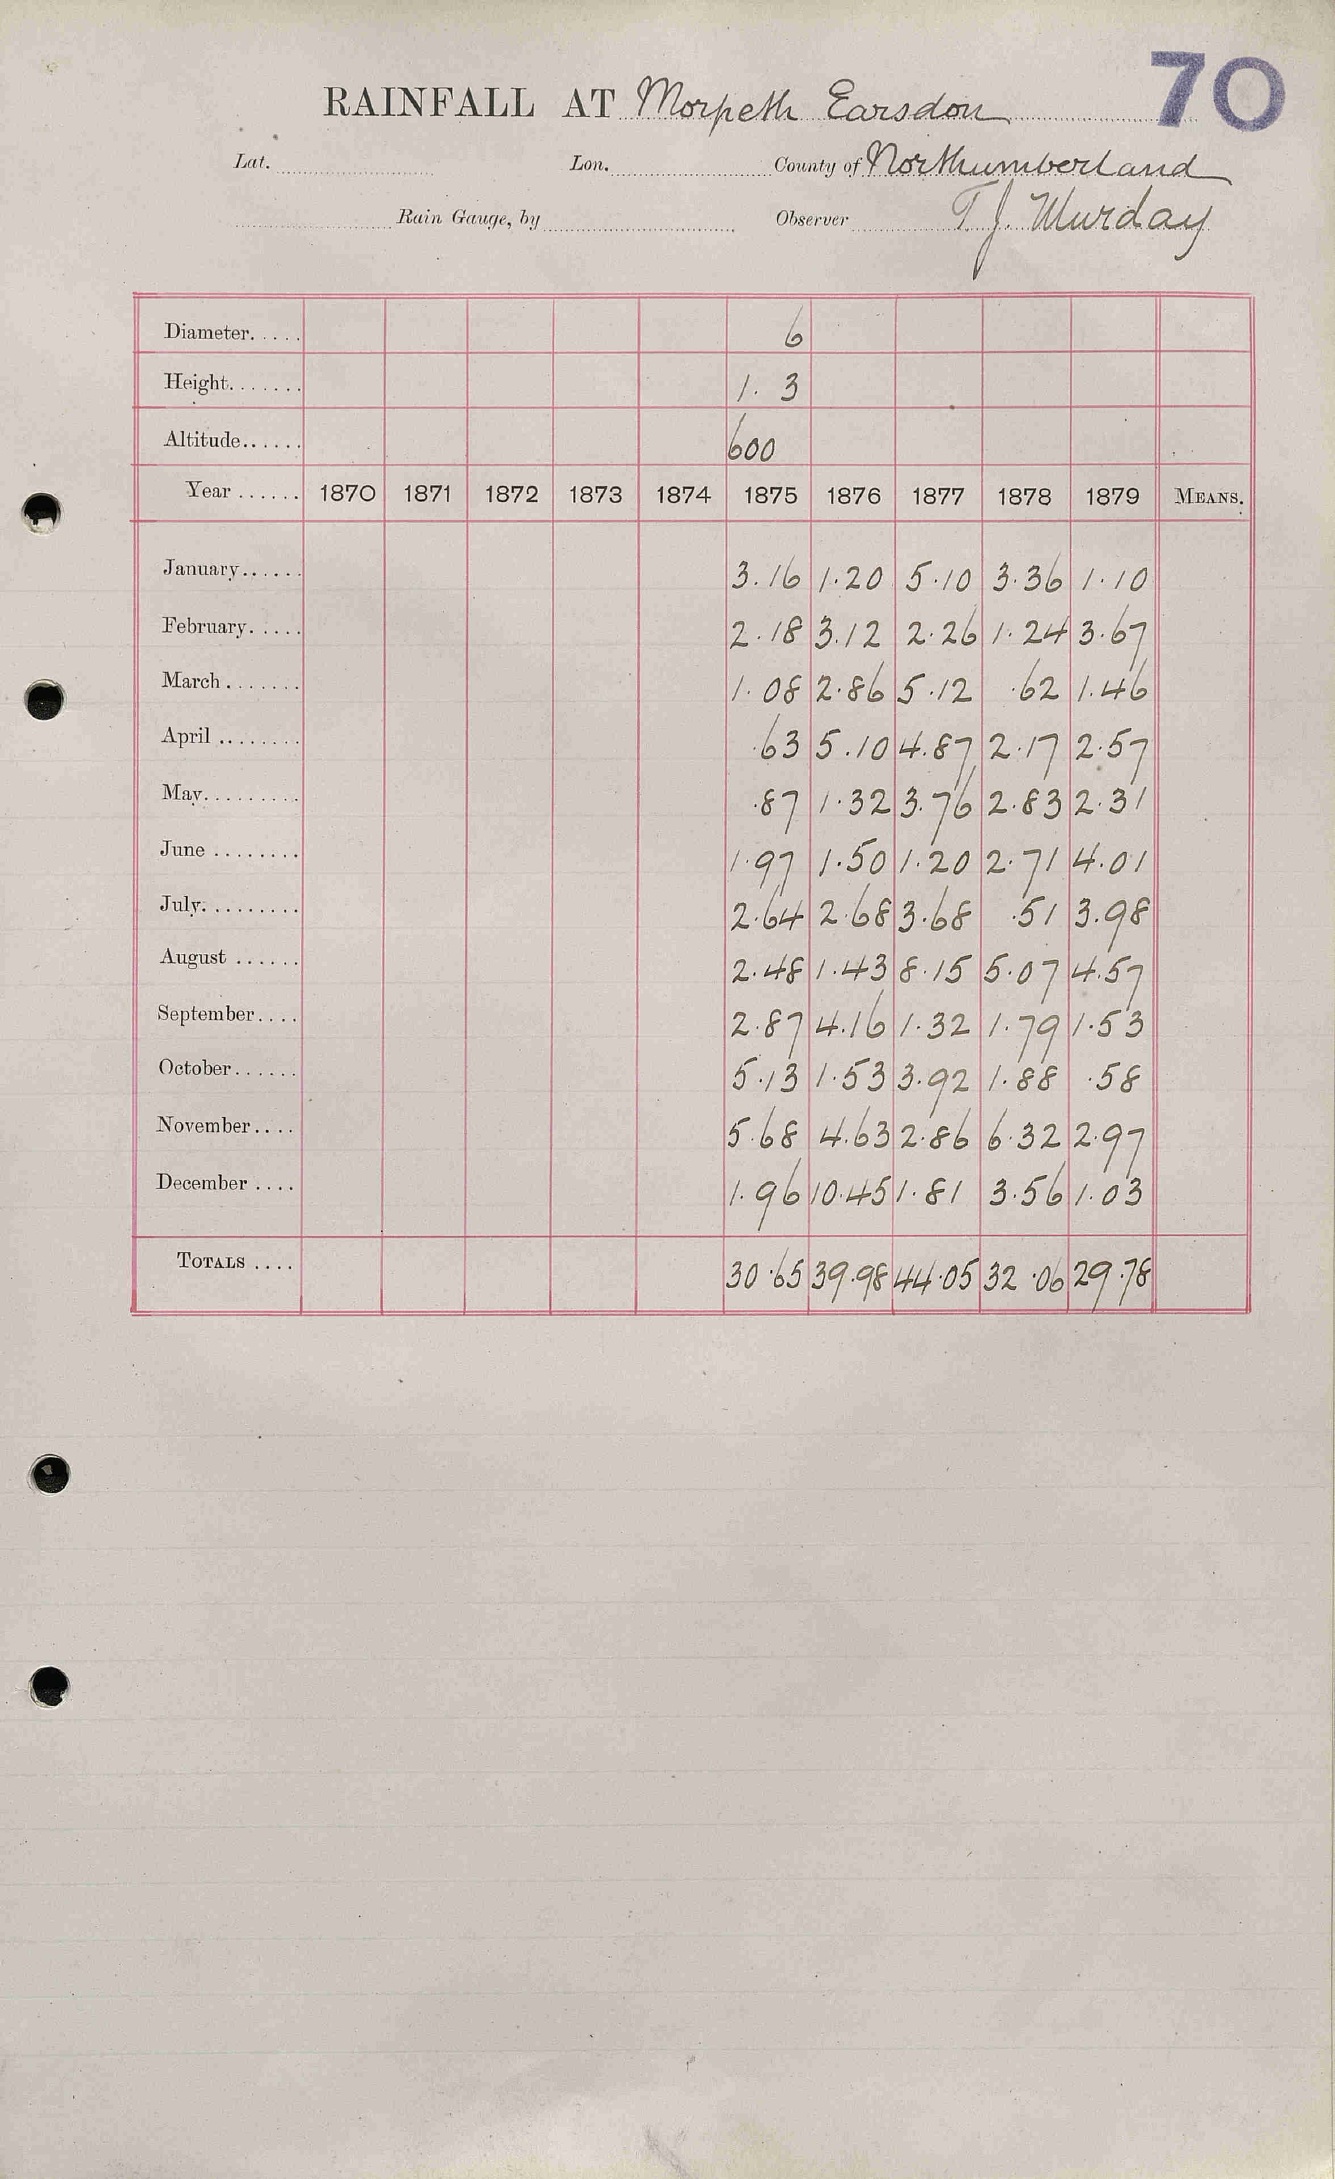 70
RAINFALL AT Morpeth Earsdon
Lat. Lon. County of Northumberland
Rain Gauge, by Observer T. J. Murday
Diameter..... 6
Height....... 1. 3
Altitude...... 600
Year ...... 1870 1871 1872 1873 1874 1875 1876 1877 1878 1879 MEANS.
January...... 3.16 1.20 5.10 3.36 1.10
February..... 2.18 3.12 2.26 1.24 3.67
March ....... 1.08 2.86 5.12 .62 1.46
April ........ .63 5.10 4.87 2.17 2.57
May......... .87 1.32 3.76 2.83 2.31
June ........ 1.97 1.50 1.20 2.71 4.01
July......... 2.64 2.68 3.68 .51 3.98
August ...... 2.48 1.43 8.15 5.07 4.57
September.... 2.87 4.16 1.32 1.79 1.53
October...... 5.13 1.53 3.92 1.88 .58
November.... 5.68 4.63 2.86 6.32 2.97
December .... 1.96 10.45 1.81 3.56 1.03
TOTALS .... 30.65 39.98 44.05 32.06 29.78